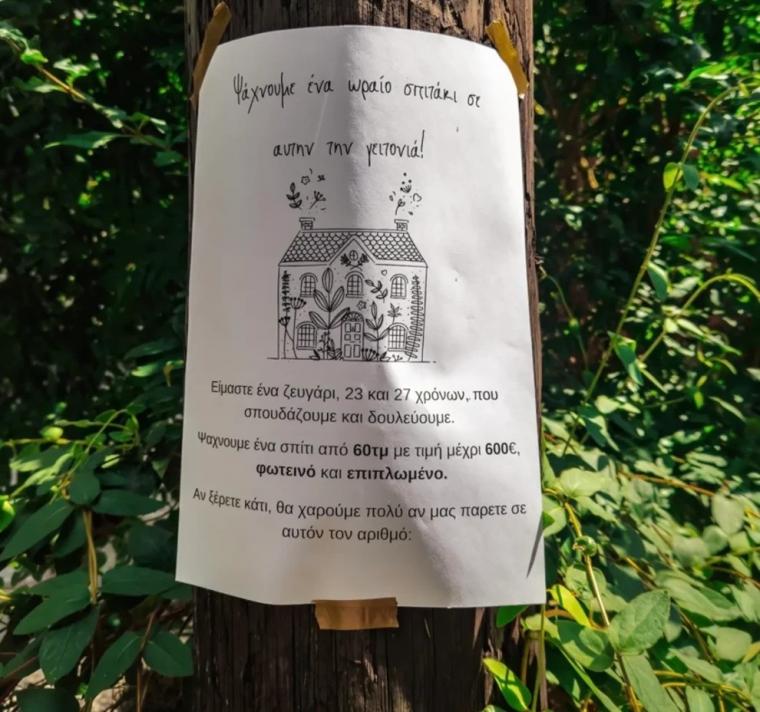 Ψάχνουμε ένα ωραίο σπιτάκι σε
αυτην την γειτονιά!
Είμαστε ένα ζευγάρι, 23 και 27 χρόνων, που
σπουδάζουμε και δουλεύουμε.
Ψαχνουμε ένα σπίτι από 60τμ με τιμή μέχρι 600€,
φωτεινό και επιπλωμένο.
Αν ξέρετε κάτι, θα χαρούμε πολύ αν μας παρετε σε
αυτόν τον αριθμό: